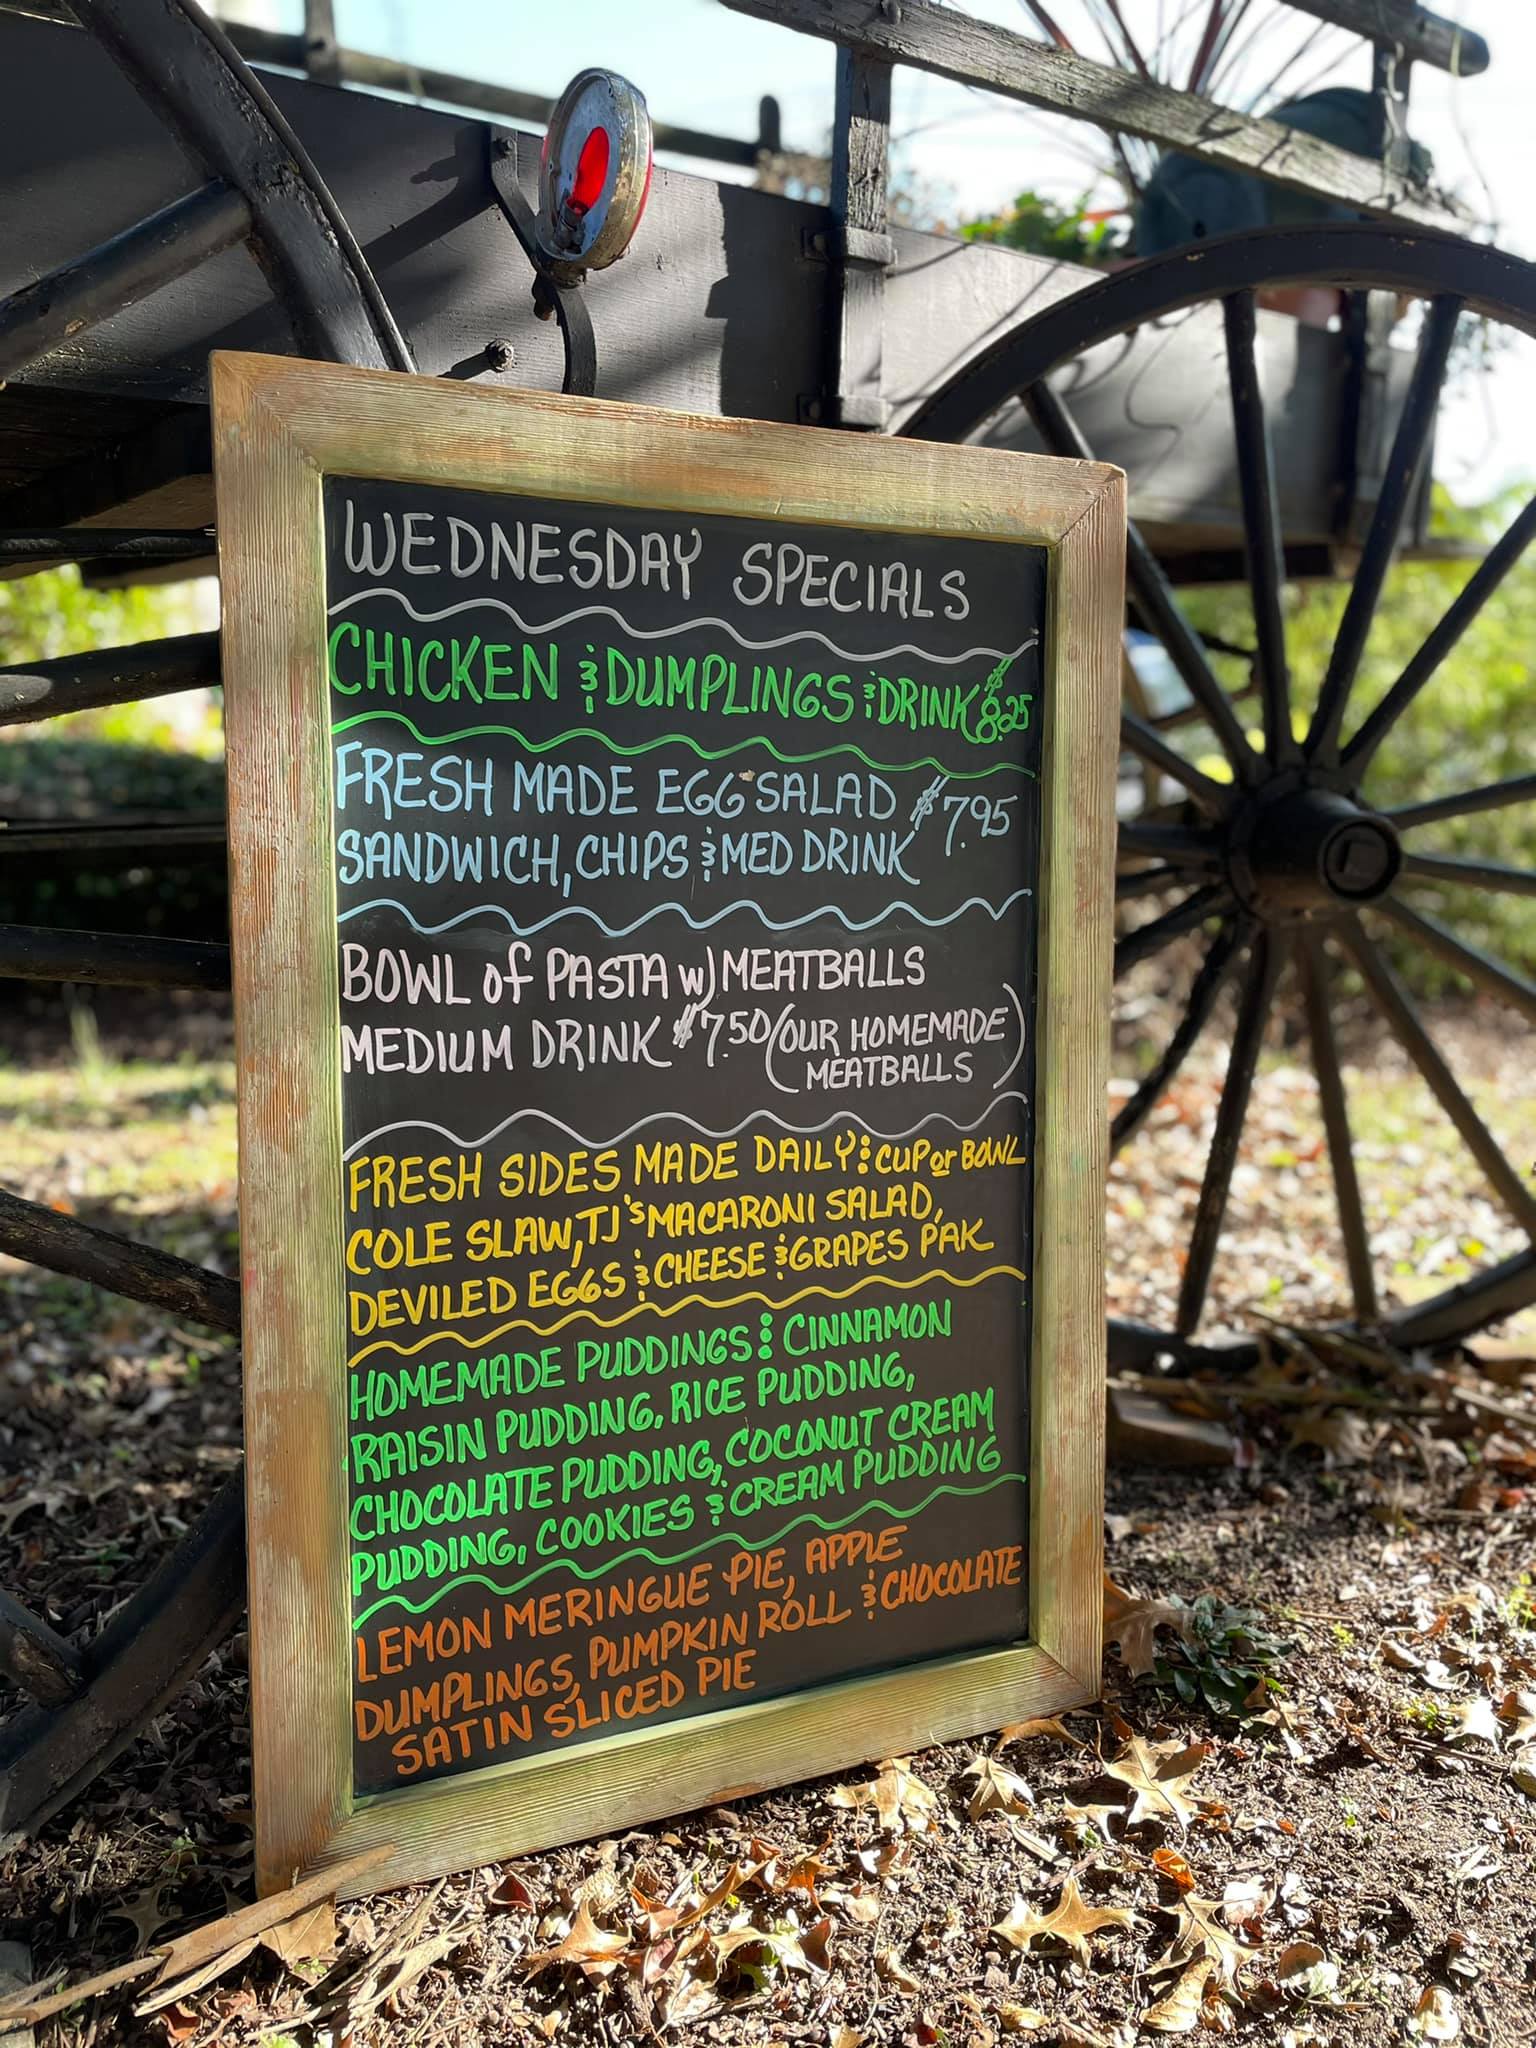 WEDNESDAY SPECIALS
CHICKEN & DUMPLINGS & DRINK $8.25
FRESH MADE EGG SALAD $7.95
SANDWICH, CHIPS & MED DRINK
BOWL of PASTA w/ MEATBALLS
MEDIUM DRINK $7.50 (OUR HOMEMADE
MEATBALLS)
FRESH SIDES MADE DAILY: CUP or BOWL
COLE SLAW, TJ'S MACARONI SALAD,
DEVILED EGGS & CHEESE & GRAPES PAK
HOMEMADE PUDDINGS: CINNAMON
RAISIN PUDDING, RICE PUDDING,
CHOCOLATE PUDDING, COCONUT CREAM
PUDDING, COOKIES & CREAM PUDDING
LEMON MERINGUE PIE, APPLE
DUMPLINGS, PUMPKIN ROLL & CHOCOLATE
SATIN SLICED PIE